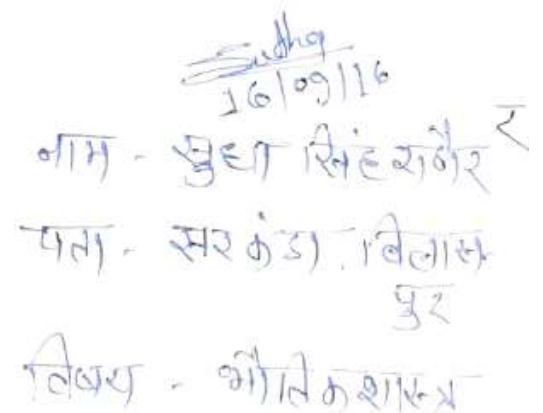 Sudha
16/09/16
नाम - सुधा सिंह राठौर
पता - सरकंडा, बिलास
पुर
विषय - भौतिक शास्त्र